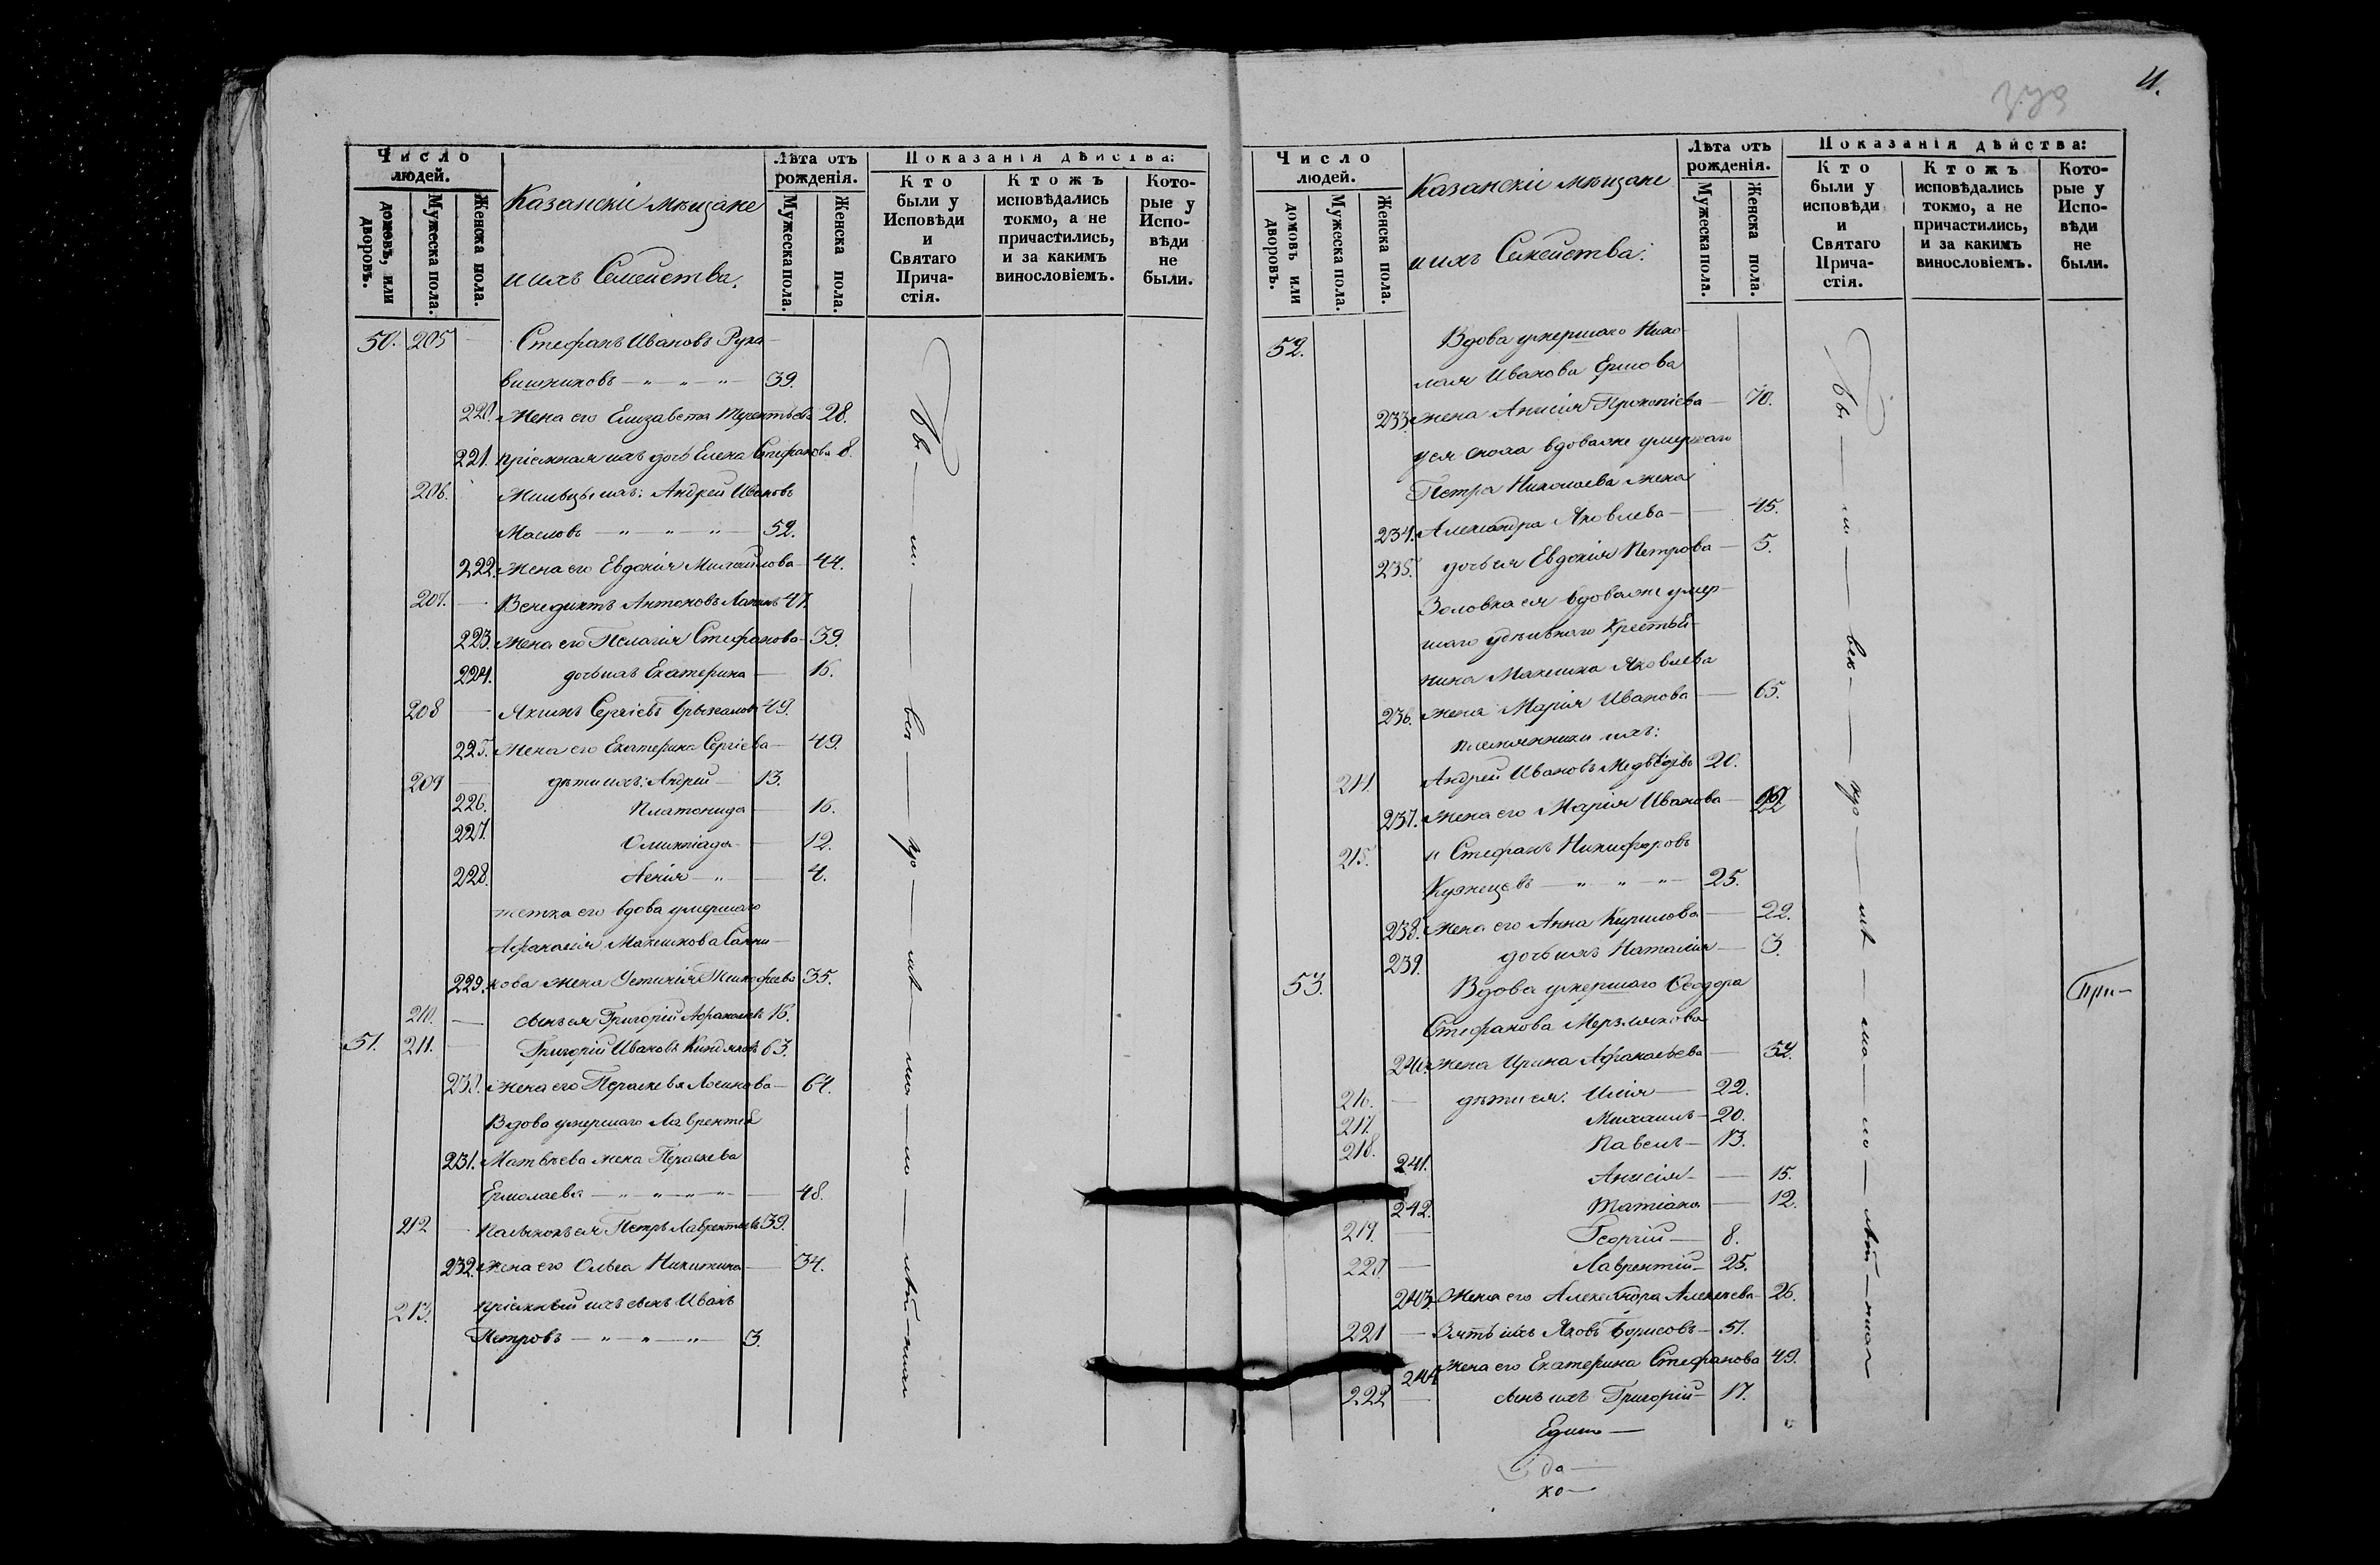 Число людей.
домовъ, или дворовъ.
Мужеска пола.
Женска пола.
Казанскіе мѣщане
и ихъ Семейства.
Лѣта отъ рожденія.
Мужеска пола.
Женска пола.
Показанія дѣйства:
Кто были у Исповѣди и Святаго Прича-стія.
Ктожъ исповѣдались токмо, а не причастились, и за какимъ винословіемъ.
Кото-рые у Испо-вѣди не были.
50. 205 Стефанъ Ивановъ Рука-
вишниковъ — 39.
220. жена его Елизавета Терентьева 28.
221. пріемная ихъ дочь Елена Стефанова 8.
206. Жильцы ихъ: Андрей Ивановъ
Масловъ — 52.
222. жена его Евдокія Михайлова — 44.
207. Венедиктъ Антоновъ 47.
223. жена его Пелагія Стефанова — 39.
224. дочь ихъ Екатерина — 16.
208 Якимъ Сергіевъ 49.
225. жена его Екатерина Сергіева — 49.
209 дѣти ихъ: Андрей — 13.
226. Платонида — 16.
227. Олимпіада — 12.
228. 4.
тетка его вдова умершаго
Афанасія
229. жена Устинія 35.
210. сынъ ея Григорій Афанасьевъ 16.
51. 211. Григорій Ивановъ 63.
230. жена его Параскева — 64.
Вдова умершаго Лаврентія
231. Матвѣева жена Параскева
Ермолаева — 48.
212 Пасынокъ ея Петръ Лаврентьевъ 39.
232. жена его Ольга Никитина — 34.
213. пріемный ихъ сынъ Иванъ
Петровъ — 3.
4.
Число людей.
домовъ или дворовъ.
Мужеска пола.
Женска пола.
Казанскіе мѣщане
и ихъ Семейства.
Лѣта отъ рожденія.
Мужеска пола.
Женска пола.
Показанія дѣйства:
Кто были у исповѣди и Святаго Прича-стія.
Ктожъ исповѣдались токмо, а не причастились, и за какимъ винословіемъ.
Кото-рые у Испо-вѣди не были.
52. Вдова умершаго Нико-
лая Иванова Ершова
233. жена Анисія Прокопіева — 70.
сноха вдова же умершаго
Петра Николаева жена
234. Александра Яковлева — 45.
235. дочь ея Евдокія Петрова — 5.
Золовка ея вдова же умер-
шаго удѣльнаго Крестья-
нина Яковлева
236. жена Марія Иванова — 65.
племянники ихъ:
214. Андрей Ивановъ Медвѣдевъ 20.
237. жена его Марія Иванова — 22
215. и Стефанъ Никифоровъ
Кузнецовъ — 25.
238. жена его Анна Кирилова — 22.
239. дочь ихъ Наталія — 3.
53. Вдова умершаго Ѳеодора
Стефанова Мерзлякова
240. жена Ирина Афанасьева — 52.
216. дѣти ея: Илія — 22.
217. Михаилъ — 20.
218. Павелъ — 13.
241. Анисія — 15.
242. Татіана — 12.
219. Георгій — 8.
220. Лаврентій — 25.
243. жена его Александра Алексѣева — 26.
221 Зять ихъ Яковъ Борисовъ — 51.
244. жена его Екатерина Стефанова 49.
222 сынъ ихъ Григорій — 17.